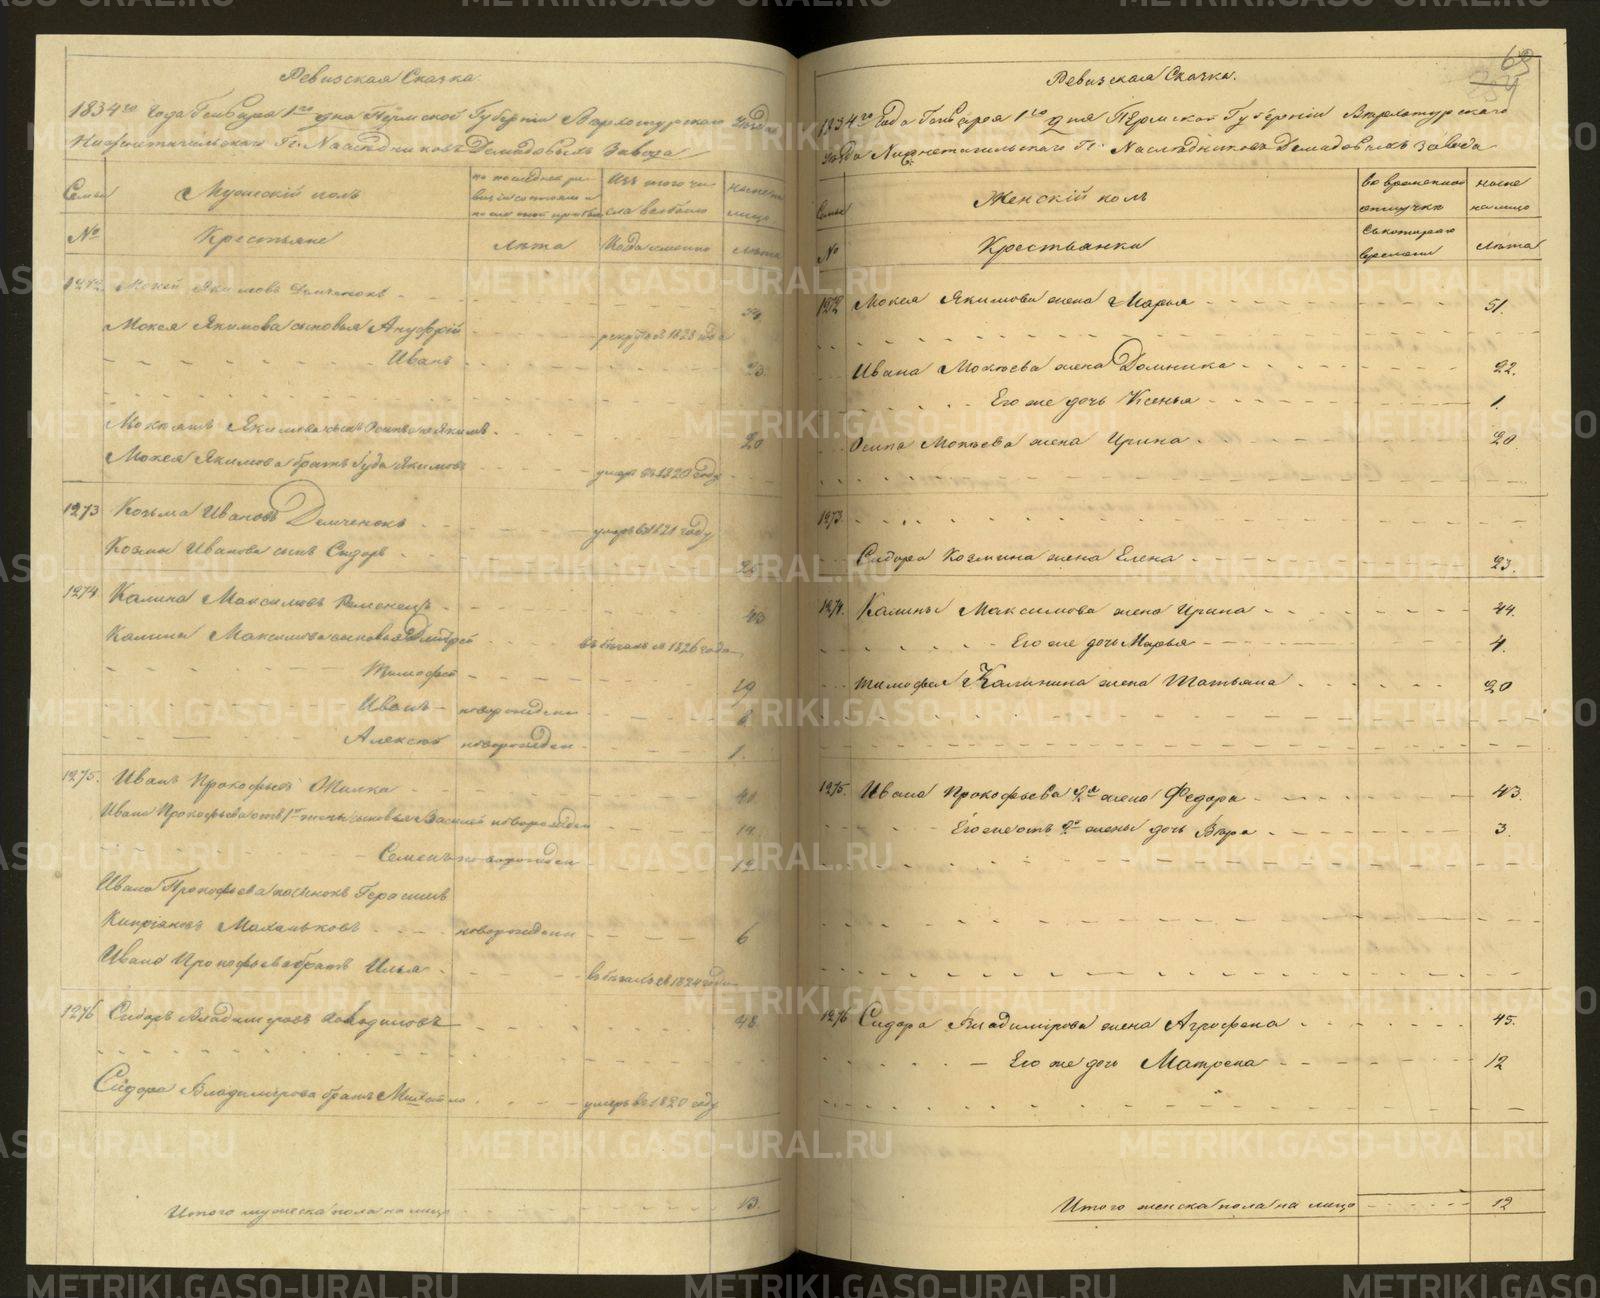 Ревизская Сказка.
1834го Года Генваря 1го дня Пермской Губернии Верхотурского Уезда
Нижнетагильского Гг. Наследниковъ Демидовыхъ Завода
Семьи
Мужескій полъ
по последней ре-
визіи состояло и
после той прибыло
Изъ того чи-
сла выбыло
Ныне на
лицо.
№
Крестьяне
Лѣта
Когда именно
Лѣта
1272. Мокей Якимовъ Демченокъ
Мокея Якимова сыновья Ануфрій рекрутъ 1828 года
Иванъ 23.
20
Мокея Якимова братъ Гуда Якимовъ умеръ въ 1820 году
1273 Козьма Ивановъ Демченокъ умеръ въ 1821 году
Козмы Иванова сынъ Сидоръ 25
1274 Калина Максимовъ 43
Калины Максимова сыновья Дмитрей въ бегахъ съ 1826 года
Тимофей 19
Иванъ новорожден
Алексей новорожден. 1.
1275. Иванъ Прокофьевъ Жилка 40
Ивана Прокофьева отъ 1й жены сыновья Василей новорожден
Семенъ новорожден 12
Ивана Прокофьева пасынокъ Герасимъ
Кипріяновъ Маханьковъ новорожден 6
Ивана Прокофьева братъ Илья въ бегахъ съ 1824 года
1276 Сидоръ Владимировъ 48.
Сидора Владимірова братъ Михайло умеръ въ 1820 году
Итого мужеска пола на лицо 13.
63
Ревизская Сказка.
1834го Года Генваря 1го дня Пермской Губерніи Верхотурского
Уезда Нижнетагильскаго Гг. Наследниковъ Демидовыхъ Завода
Семьи
Женскій полъ
во временной
отлучки
Ныне
на лицо
№
Крестьянки
Съкоторого
времени
Лѣта
1272 Мокея Якимова жена Марья 51.
Ивана Мокѣева жена Домника 22.
Его же дочь Ксенья 1.
Осипа Мокѣева жена Ирина 20.
1273.
Сидора Козмина жена Елена 23.
1274. Калины Максимова жена Ирина 44.
Его же дочь Марья 4.
Тимофея Калинина жена Татьяна 20
1275. Ивана Прокофьева 2я жена Федора 43.
Его же отъ 2й жены дочь Вѣра 3.
1276 Сидора Владимірова жена Агрофена 45.
Его же дочь Матрена 12
Итого женска пола на лицо 12
METRIKI.GASO-URAL.RU